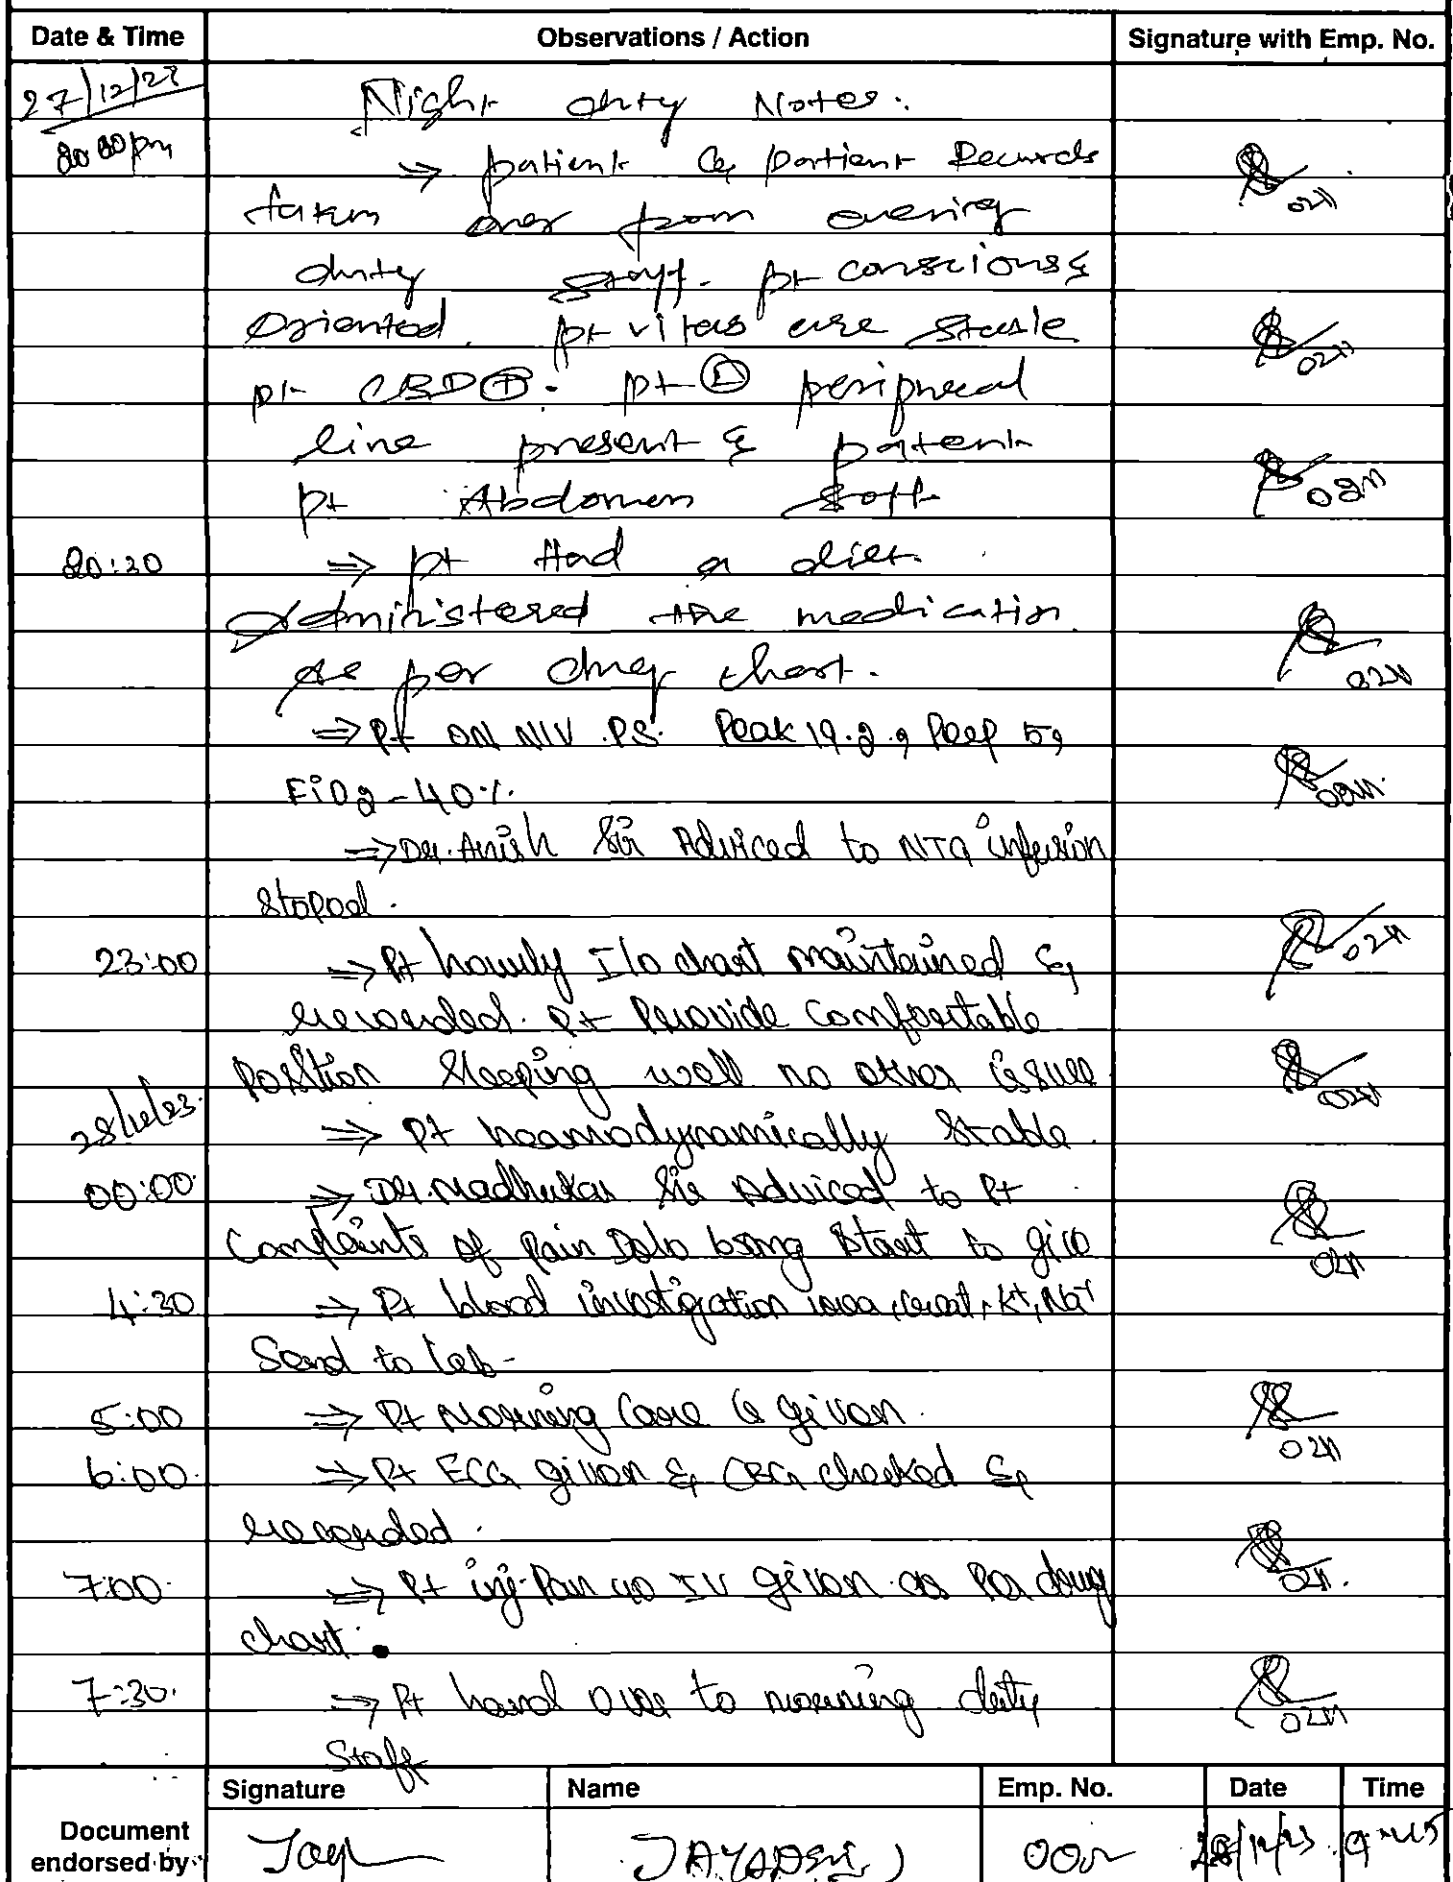 Date & Time Observations / Action Signature with Emp. No.
27/12/23 Night duty Notes.
20:00pm ⇒ patient & patient Records
taken over from evening
duty staff. pt conscious &
Oriented. pt vitas are stable
pt CBD⊕. pt Ⓛ peripheral
line present & patent
pt Abdomen soft
20:30 ⇒ pt Had a diet.
Administered the medication
as per drug chart.
⇒ Pt ON NIV PS. Peak 19.2, Peep 5,
FiO2-40%.
⇒ Dr. Anish Sir Adviced to NTG infusion
stoped.
23:00 ⇒ Pt hourly I/o chart maintained &
recorded. Pt Provide Comfortable
Position Sleeping well no other issues
28/12/23. ⇒ Pt heamodynamically Stable.
00:00 ⇒ Dr. Madhukar Sir Adviced to Pt
Complaints of Pain Dolo Start to give
4:30 ⇒ Pt blood investigation urea, creat, K+, Na+
Send to Lab-
5:00 ⇒ Pt Morning Care is given.
6:00. ⇒ Pt ECG given & CBG checked &
recorded.
7:00. ⇒ Pt inj. Pan 40 IV given as Per drug
chart.
7:30. ⇒ Pt hand over to morning duty
Staff
Signature Name Emp. No. Date Time
Document
endorsed by Jay JAYADEVI 28/12/23